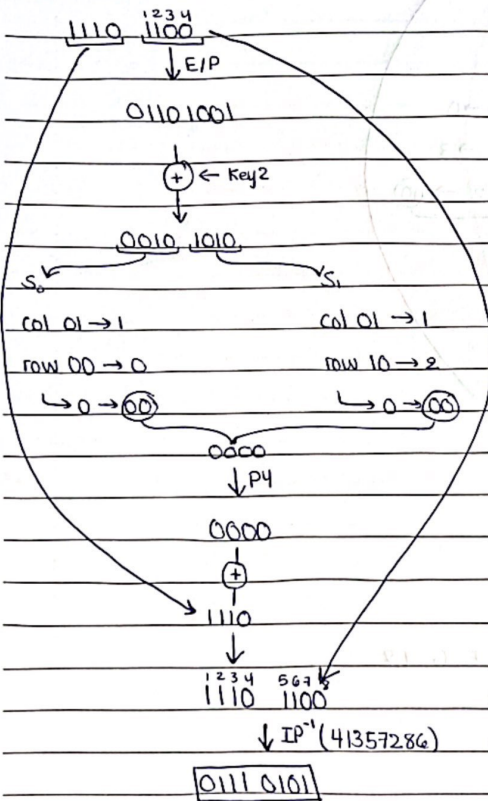 1 2 3 4
1110 1100
↓ E/P
01101001
+ ← Key2
0010 1010
S₀ S₁
col 01 → 1 col 01 → 1
row 00 → 0 row 10 → 2
↳ 0 → 00 ↳ 0 → 00
0000
↓ P4
0000
+
1110
1 2 3 4 5 6 7 8
1110 1100
↓ IP⁻¹ (41357286)
0111 0101